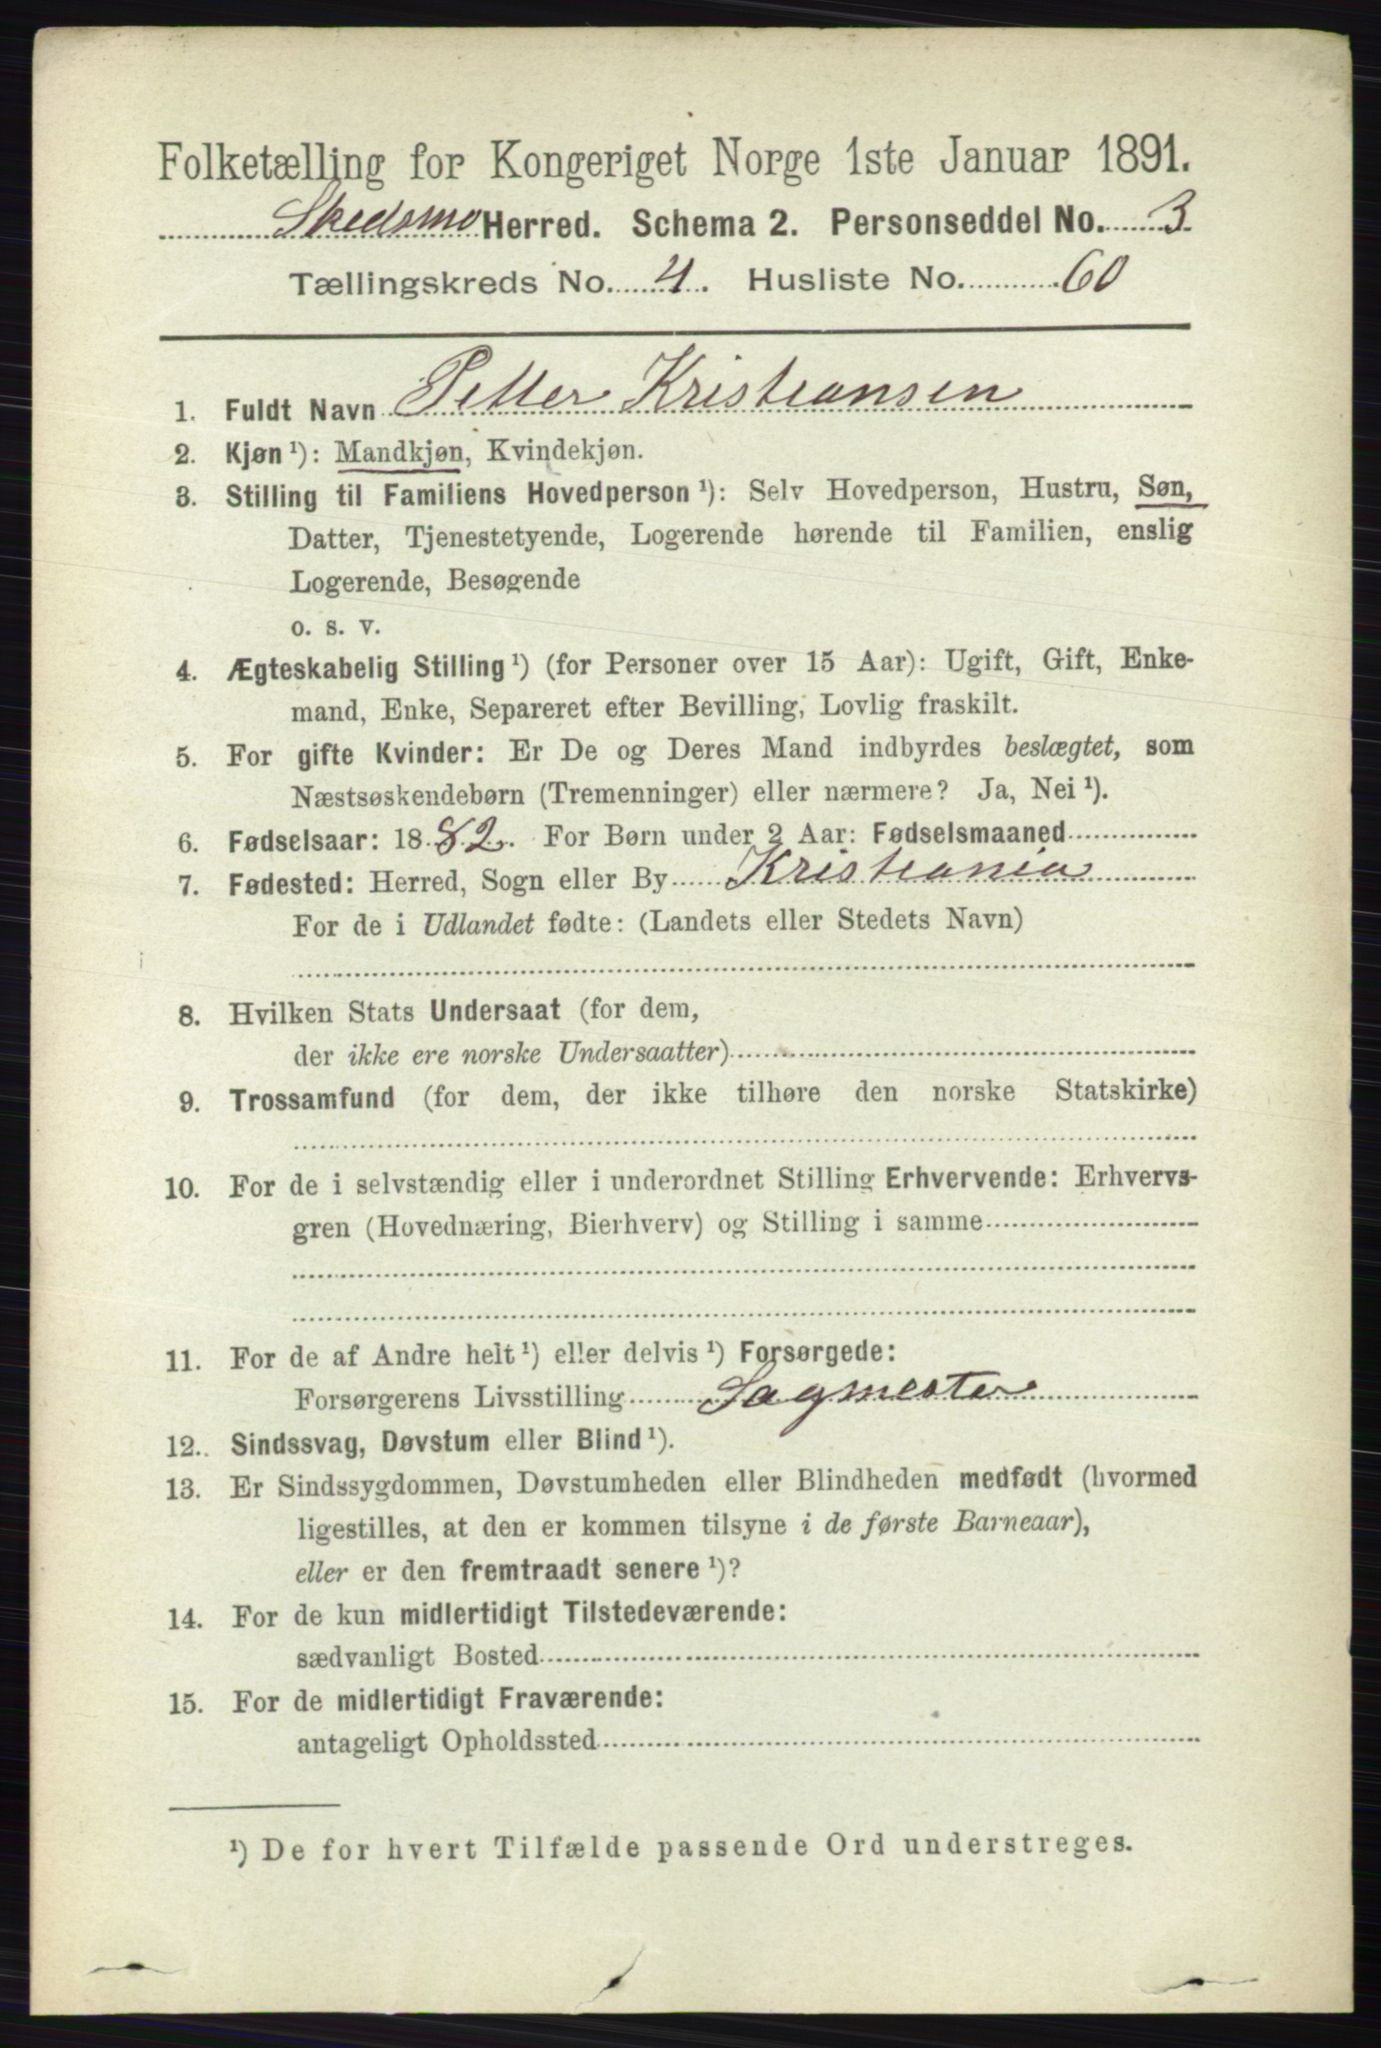 Folketælling for Kongeriget Norge 1ste Januar 1891.
Skedsmo Herred. Schema 2. Personseddel No. 3
Tællingskreds No. 4. Husliste No. 60
1. Fuldt Navn Petter Kristiansen
2. Kjøn ¹): Mandkjøn, Kvindekjøn.
3. Stilling til Familiens Hovedperson ¹): Selv Hovedperson, Hustru, Søn,
Datter, Tjenestetyende, Logerende hørende til Familien, enslig
Logerende, Besøgende
o. s. v.
4. Ægteskabelig Stilling ¹) (for Personer over 15 Aar): Ugift, Gift, Enke-
mand, Enke, Separeret efter Bevilling, Lovlig fraskilt.
5. For gifte Kvinder: Er De og Deres Mand indbyrdes beslægtet, som
Næstsøskendebørn (Tremenninger) eller nærmere? Ja, Nei ¹).
6. Fødselsaar: 1882. For Børn under 2 Aar: Fødselsmaaned
7. Fødested: Herred, Sogn eller By Kristiania
For de i Udlandet fødte: (Landets eller Stedets Navn)
8. Hvilken Stats Undersaat (for dem,
der ikke ere norske Undersaatter)
9. Trossamfund (for dem, der ikke tilhøre den norske Statskirke)
10. For de i selvstændig eller i underordnet Stilling Erhvervende: Erhvervs-
gren (Hovednæring, Bierhverv) og Stilling i samme
11. For de af Andre helt ¹) eller delvis ¹) Forsørgede:
Forsørgerens Livsstilling Sagmester
12. Sindssvag, Døvstum eller Blind ¹).
13. Er Sindssygdommen, Døvstumheden eller Blindheden medfødt (hvormed
ligestilles, at den er kommen tilsyne i de første Barneaar),
eller er den fremtraadt senere ¹)?
14. For de kun midlertidigt Tilstedeværende:
sædvanligt Bosted
15. For de midlertidigt Fraværende:
antageligt Opholdssted
¹) De for hvert Tilfælde passende Ord understreges.